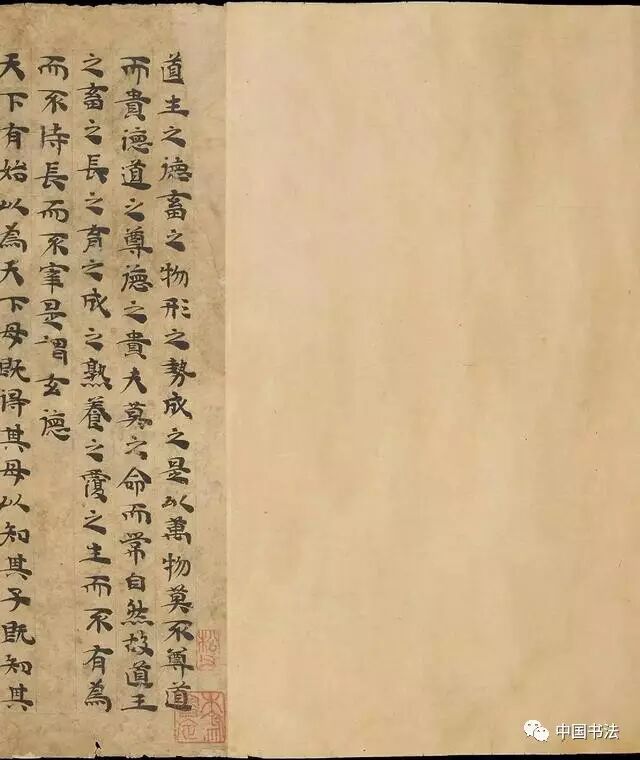 道生之德畜之物形之勢成之是以萬物莫不尊道
而貴德道之尊德之貴夫莫之命而常自然故道生
之畜之長之育之成之熟養之覆之生而不有為
而不恃長而不宰是謂玄德
天下有始以為天下母既得其母以知其子既知其
中国书法